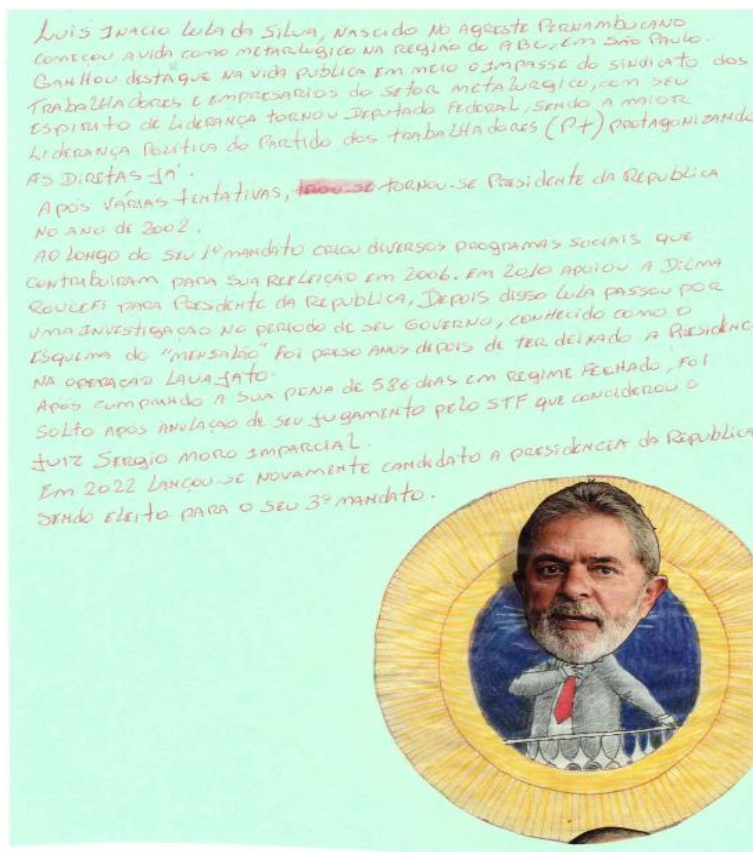 Luis Inacio Lula da Silva, nascido no agreste Pernambucano
começou a vida como metarlugico na região do ABC, em São Paulo.
Ganhou destaque na vida publica em meio o impasse do sindicato dos
trabalhadores e empresarios do setor metalurgico, com seu
espirito de liderança tornou Deputado Federal, sendo a maior
liderança política do Partido dos trabalhadores (Pt) protagonizando
as Diretas já.
Após várias tentativas, tornou-se Presidente da Republica
no ano de 2002.
Ao longo do seu 1º mandato criou diversos programas sociais que
contribuiram para sua reeleição em 2006. Em 2010 apoiou a Dilma
Roucefi para Presidente da Republica, Depois disso Lula passou por
uma investigação no periodo de seu governo, conhecido como o
esquema do "mensalão" foi preso anos depois de ter deixado a Presidenc
na operação Lava jato.
Após cumprindo a sua pena de 586 dias em regime fechado, foi
solto apos anulação de seu jugamento pelo STF que conciderou o
juiz Sergio Moro imparcial.
Em 2022 lançou-se novamente candidato a presidencia da Republica
sendo eleito para o seu 3º mandato.